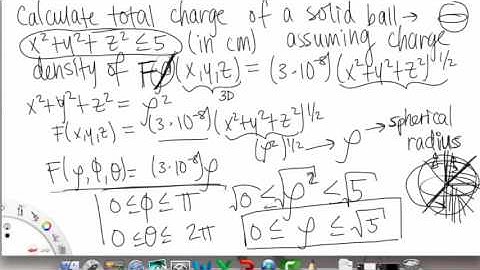 Calculate total charge of a solid ball→
x²+y²+z² ≤ 5 (in cm) assuming charge
density of F(x,y,z) = (3·10⁻⁸)(x²+y²+z²)^1/2
3D
x²+y²+z² = ρ²
F(x,y,z) = (3·10⁻⁸)(x²+y²+z²)^1/2
(ρ²)^1/2 → ρ → spherical radius
F(ρ,ϕ,θ) = (3·10⁻⁸)ρ
0≤ϕ≤π √0 ≤ √ρ² ≤ √5
0≤θ≤ 2π 0 ≤ ρ ≤ √5